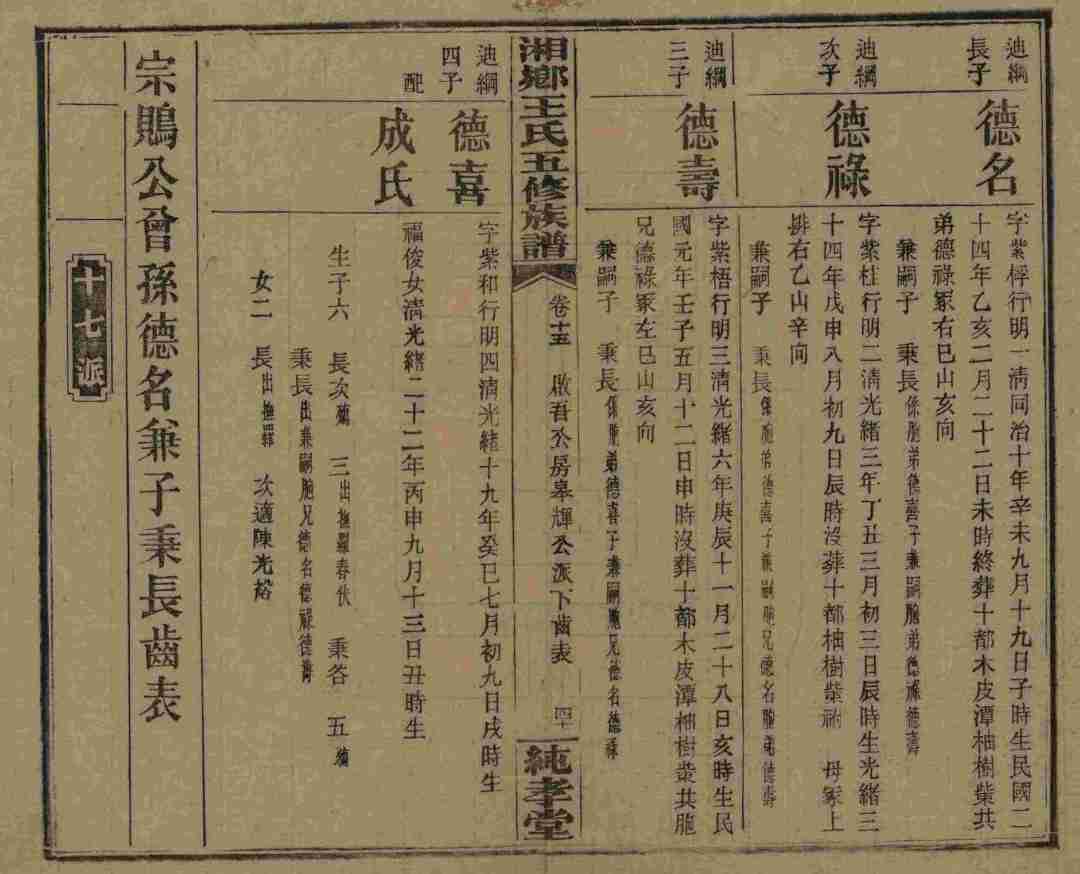 迪綱
長子
德名
字紫桴行明一淸同治十年辛未九月十九日子時生民國二
十四年乙亥二月二十二日未時終葬十都木皮潭柚樹㘵共
弟德祿冢右巳山亥向
兼嗣子 秉長係胞弟德喜子兼嗣胞弟德祿德壽
迪綱
次子
德祿
字紫桂行明二淸光緒三年丁丑三月初三日辰時生光緒三
十四年戊申八月初九日辰時沒葬十都柚樹㘵祔 母冢上
排右乙山辛向
兼嗣子 秉長係胞弟德喜子兼嗣胞兄德名胞弟德壽
迪綱
三子
德壽
字紫梧行明三淸光緒六年庚辰十一月二十八日亥時生民
國元年壬子五月十二日申時沒葬十都木皮潭柚樹㘵共胞
兄德祿冢左巳山亥向
兼嗣子 秉長係胞弟德喜子兼嗣胞兄德名德祿
湘鄉王氏五修族譜
卷十五 啟吾公房皋輝公派下齒表
純孝堂
迪綱
四子
德喜
字紫和行明四淸光緒十九年癸巳七月初九日戌時生
配
成氏
福俊女淸光緒二十二年丙申九月十三日丑時生
生子六 長次殤 三出撫羅春伙 秉谷 五殤
秉長出兼嗣胞兄德名德祿德壽
女二 長出撫羅 次適陳光裕
宗鵰公曾孫德名兼子秉長齒表
十七派